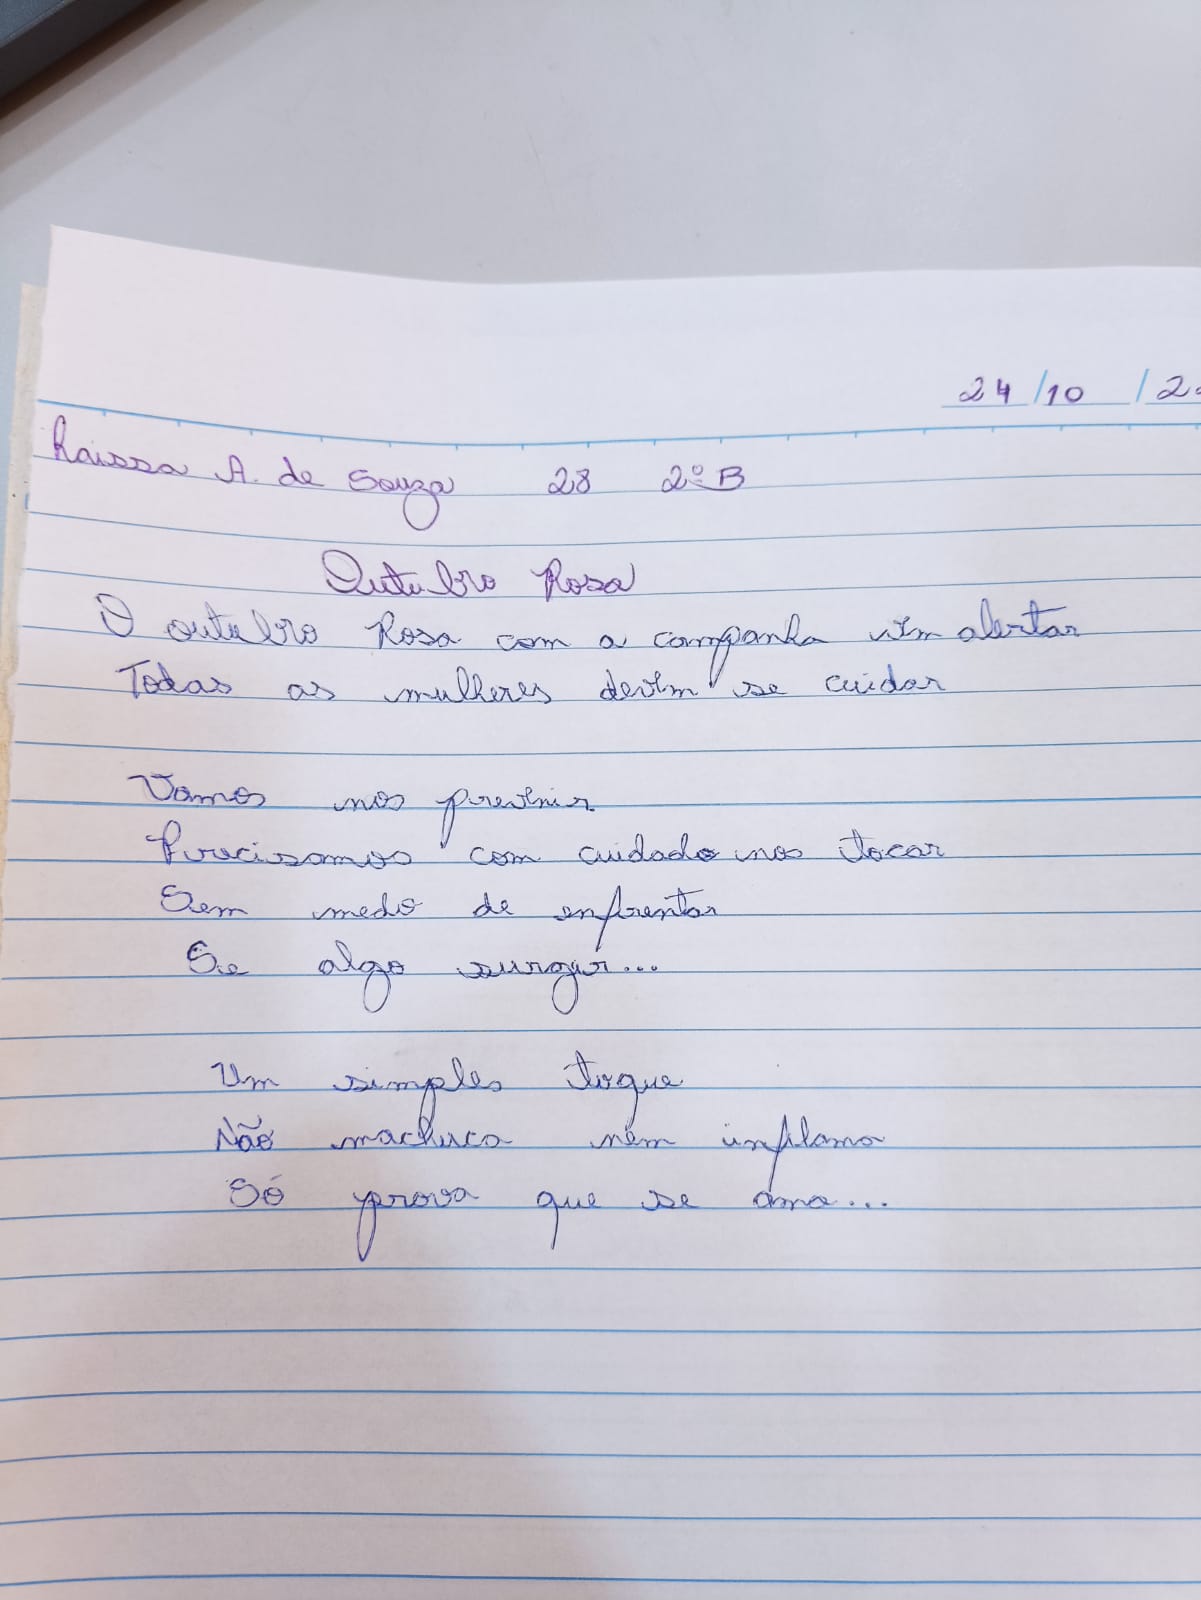 24/10/2
Raissa A. de Souza 28 2º B
Outubro Rosa
O outubro Rosa com a campanha vem alertar
Todas as mulheres devem se cuidar
Vamos nos prevenir
Precisamos com cuidado nos tocar
Sem medo de enfrentar
Se algo surgir...
Um simples toque
Não machuca nem inflama
Só prova que se ama...